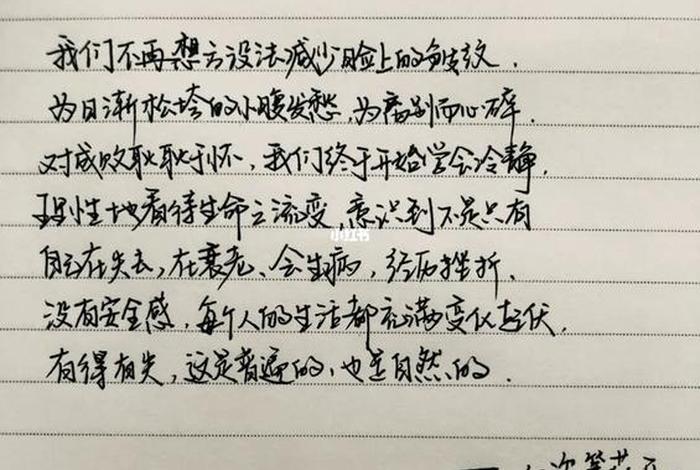 我们不再想方设法减少脸上的皱纹,
为日渐松垮的小腹发愁,为离别而心碎,
对成败耿耿于怀,我们终于开始学会冷静,
理性地看待生命之流变,意识到不是只有
自己在失去,在衰老、会生病,经历挫折,
没有安全感,每个人的生活都充满变化起伏,
有得有失,这是普遍的,也是自然的.
小红书